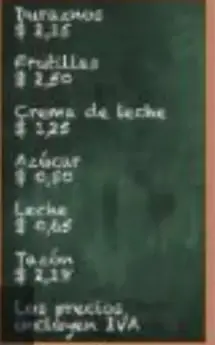 Duraznos
$ 2,15
Frutillas
$ 2,50
Crema de leche
$ 1,25
Azúcar
$ 0,50
Leche
$ 0,65
Tazón
$ 2,19
Los precios
incluyen IVA